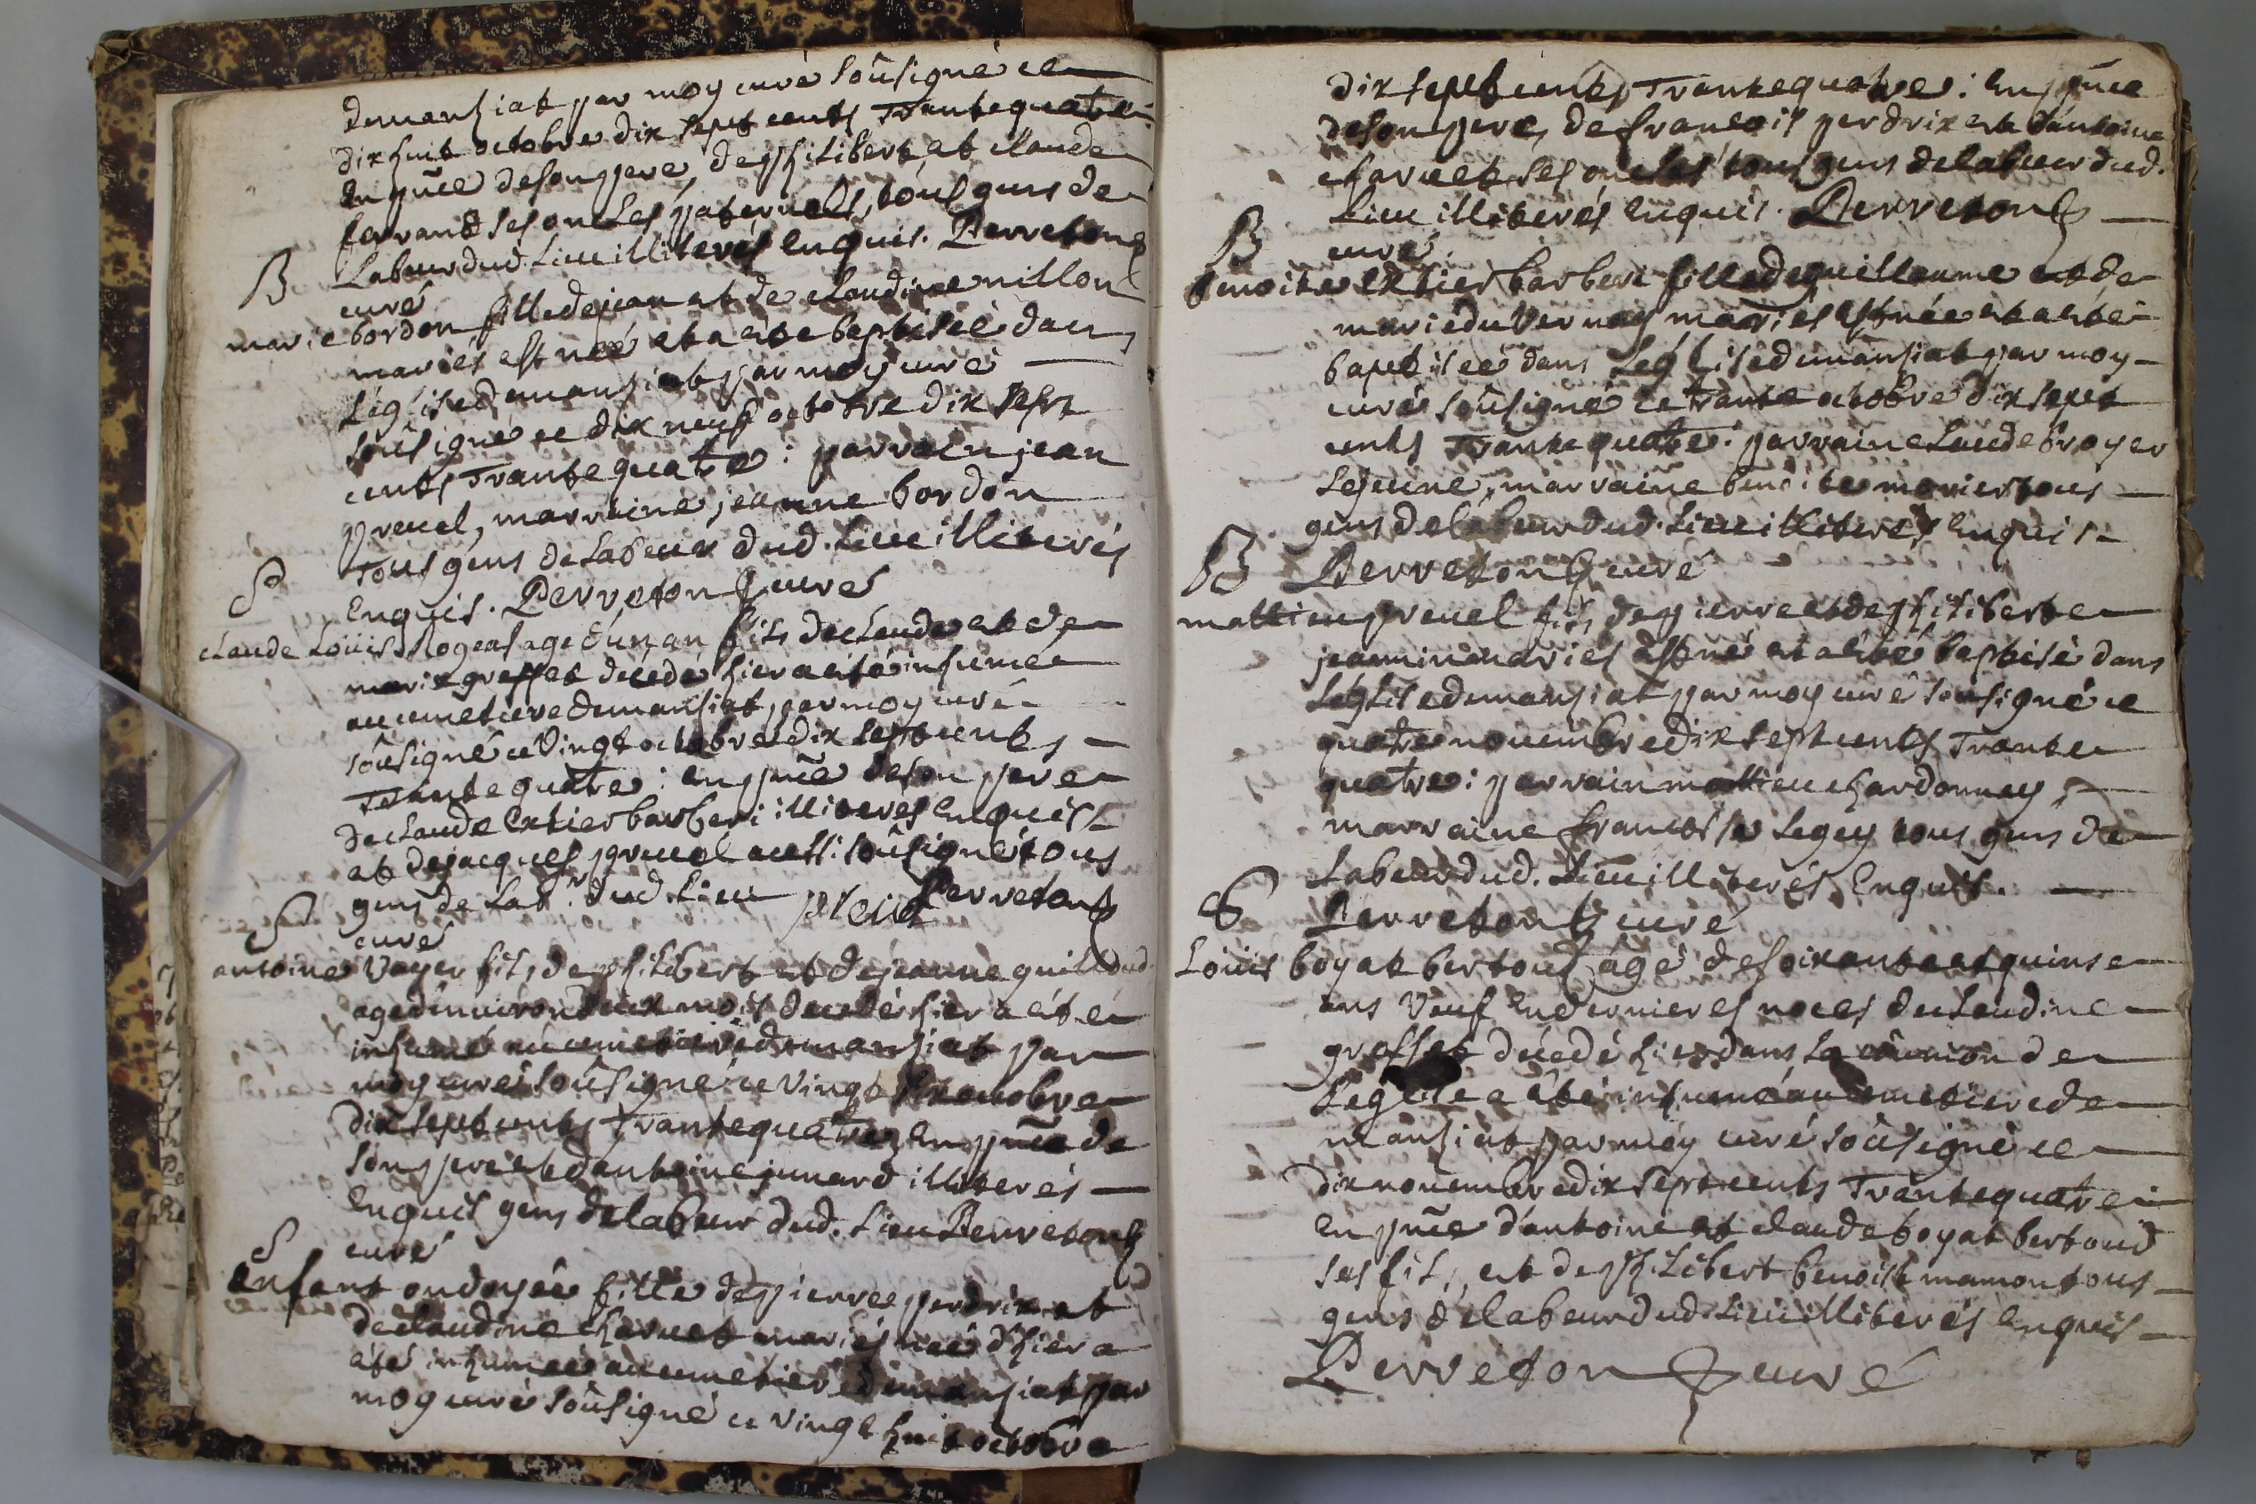 demanziat par moy curé soûsigné ce
dix huit octobre dix sept cents Trantequatre:
En pnce deson pere, de philibert et claude
ferrand ses oncles paternels, tous gens de
Labeur dud. Lieu illiterés Enquis. Perreton
curé
B
marie bordon fille dejean et de claudine nillon
mariés est née et a eté baptisée dans
Léglise demanziat par moy curé
soûsigné ce dix neuf octobre dix sept
cents Trantequatre: parrain jean
preuel, marraine jeanne bordon
Tous gens de Labeur dud. Lieu illiterés
Enquis. Perreton curé
S
claude Loüis Rogeat agé d'un an fils declaude et de
marie greffet décédé hier a eté inhumé
au cimetiere demanziat, par moy curé
soûsigné ce Vingt octobre dix sept cents
Trantequatre: en pnce deson pere
declaude Extier barberi illiteres Enquis
et dejacques preuel aussi soûsigné tous
gens de Lab.r dud. Lieu preuel Perreton
curé
S
antoine Voyer fils de philibert et dejeanne guillod
agé d'environ deux mois decédé hier a eté
inhumé au cimetiere demanziat par
moy curé soûsigné ce Vingt six octobre
dix sept cents Trantequatre, En pnce de
son pere et d'antoine junard illiterés
Enquis gens delabeur dud. Lieu Perreton
curé
S
Enfant ondoyée fille de pierre perdrix et
declaudine charuet mariés née d'hier a
eté inhumée au cimetiere demanziat par
moy curé soûsigné ce Vingt huit octobre
dix sept cents Trantequatre: En pnce
deson pere, de francois perdrix et d'antoine
charuet ses oncles tous gens delabeur dud.
Lieu illiterés Enquis. Perreton
curé.
B
benoite Extier barberi fille deguillaume et de
marie du Vernay mariés est née et a eté
baptisée dans Léglise demanziat par moy
curé soûsigné ce trante octobre dix sept
cents Trantequatre: parrain claude broyer
Lejeune, marraine benoite morier tous
gens delabeur dud. Lieu illiterés Enquis
B
Perreton curé
matthieu preuel fils de pierre et de philiberte
jeannin mariés est né et a eté baptisé dans
Léglise demanziat par moy curé soûsigné ce
quatre nouembre dix sept cents Trante
quatre: parrain matthieu chardonney,
marraine francoise Legey tous gens de
Labeur dud. Lieu illiterés Enquis.
S
Perreton curé
Loüis boyat bertoud agé desoixante et quinse
ans Veuf En dernieres noces declaudine
greffet décédé hier dans La comm̃on de
Leglise a été inhumé au cimetiere de
manziat par moy curé soûsigné ce
dix nouembre dix sept cents Trantequatre
En pnce d'antoine et claude boyat bertoud
ses fils, et de philibert benoist mamon tous
gens delabeur dud. Lieu illiterés Enquis
Perreton curé